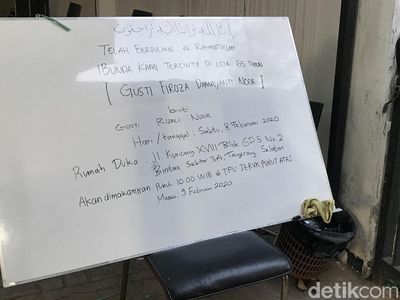 إنا لله وإنا إليه راجعون
TELAH BERPULANG KE RAHMATULLAH
IBUNDA KAMI TERCINTA DI USIA 65 TAHUN
[ GUSTI FIROZA DAMAYANTI NOOR ]
binti
GUSTI RIZALI NOOR
Hari / tanggal : Sabtu, 8 Februari 2020
Rumah Duka : Jl. Kucica XVIII Blok GD 5 No. 2
Bintaro Sektor 3A, Tangerang Selatan
Akan dimakamkan : Pukul 10.00 WIB di TPU JERUK PURUT ATAS
Minggu, 9 Februari 2020
detikcom